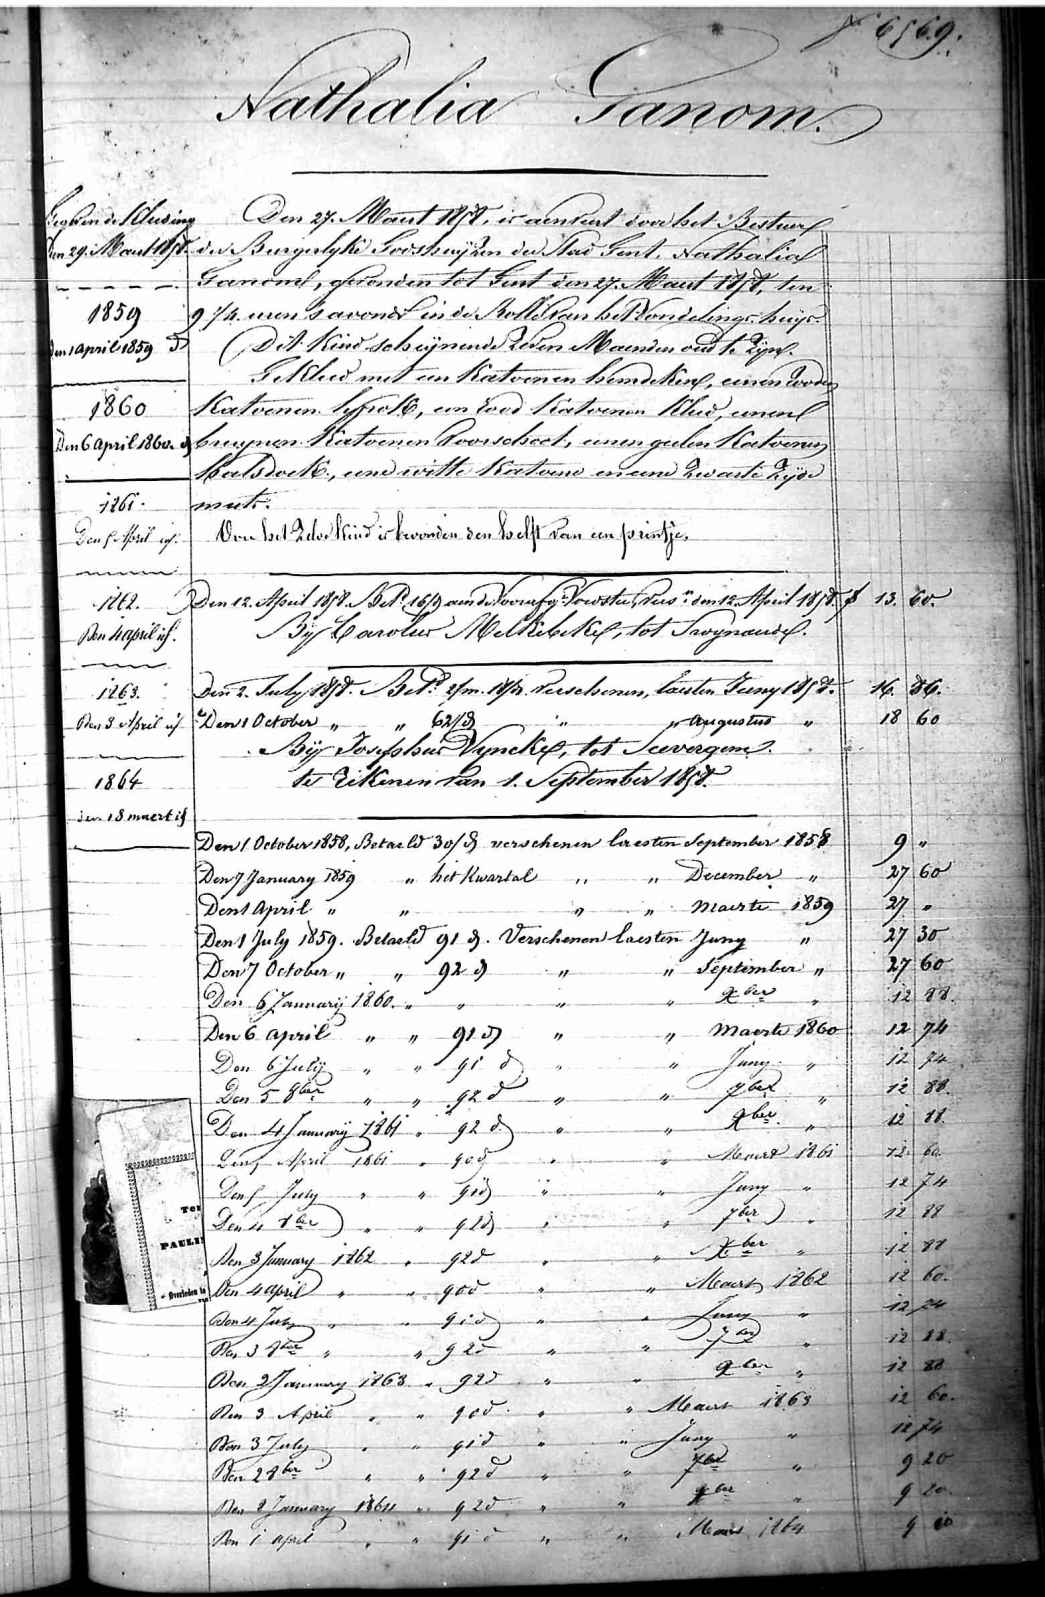 Nº 6569.
Nathalia Ganom.
Den 27. Maart 1858, is aenveert door het Bestuur
der Burgerlyke Godshuyzen der Stad Gent, Nathalia
Ganom, gevonden tot Gent den 27. Maart 1858, ten
9 1/4 uren s'avonds in de Rolle van het Vondelings-huys.
Dit kind scheynende zeven Maenden oud te zyn.
Gekleed met een katoenen hemdeken, eenen rooden
katoenen, een rood katoenen kleed, eenen
bruynen katoenen voorschoot, eenen geelen katoenen
halsdoek, eene witte katoene en eene zwarte zyde
muts.
Van het zelve kind is bevonden den helft van een printje.
den 29. Maart 1858.
1859
den 1 april 1859 d
1860
Den 6 april 1860. d
1861.
Den 5 April id.
1862.
Den 4 april id.
1863.
Den 3 April id
1864
den 18 maert id
Den 12. April 1858. den 12. April 1858. f 13. 60.
By Carolus Melkebeke, tot
Den 2. July 1858. verschenen, laesten Juny 1858. 16. 86.
Den 1 October " " 62/d " " augustus " 18 60
By Josephus Vyncke, tot Seevergem.
te rekenen van 1. September 1858.
Den 1 October 1858, Betaeld 30/d verschenen laesten September 1858 9 "
Den 7 January 1859 " het kwartal " " December " 27 60
Den 1 April " " " " maerte 1859 27 "
Den 1 July 1859. Betaeld 91 d. Verschenen laesten Juny " 27 30
Den 7 October " " 92 d " " September " 27 60
Den 6 Januarij 1860. " " " " Xber " 12 88.
Den 6 april " " 91 d " " maerte 1860 12 74
Den 6 July " " 91 d " " Juny " 12 74
Den 5 8ber " " 92 d " " 7ber " 12 88.
Den 4 Januarij 1861 " 92 d " " Xber " 12 88.
Den 5 April 1861 " 90 d " " Maert 1861 12 60
Den 5 July " " 91 d " " Juny " 12 74
Den 4 8ber " " 92 d " " 7ber " 12 88
Den 3 January 1862 " 92 d " " Xber " 12 88
Den 4 april " " 90 d " " Maert 1862 12 60.
Den 4 July " " 91 d " " Juny " 12 74
Den 3 8ber " " 92 d " " 7ber " 12 88.
Den 2 January 1863 " 92 d " " Xber " 12 88
Den 3 April " " 90 d " " Maert 1863 12 60.
Den 3 July " " 91 d " " Juny " 12 74
Den 2 8ber " " 92 d " " 7ber " 9 20
Den 8 January 1864 " 92 d " " Xber " 9 20.
Den 1 april " " 91 d " " Maert 1864 9 10
PAULI